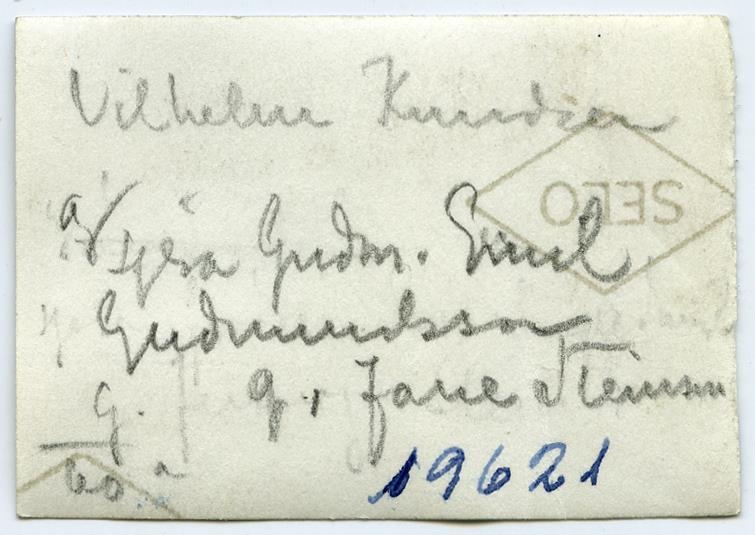 Vilhelm Knudsen
SELO
Gudm. Emil
Gudmundsson
g. g. Jane Steinson
60
19621